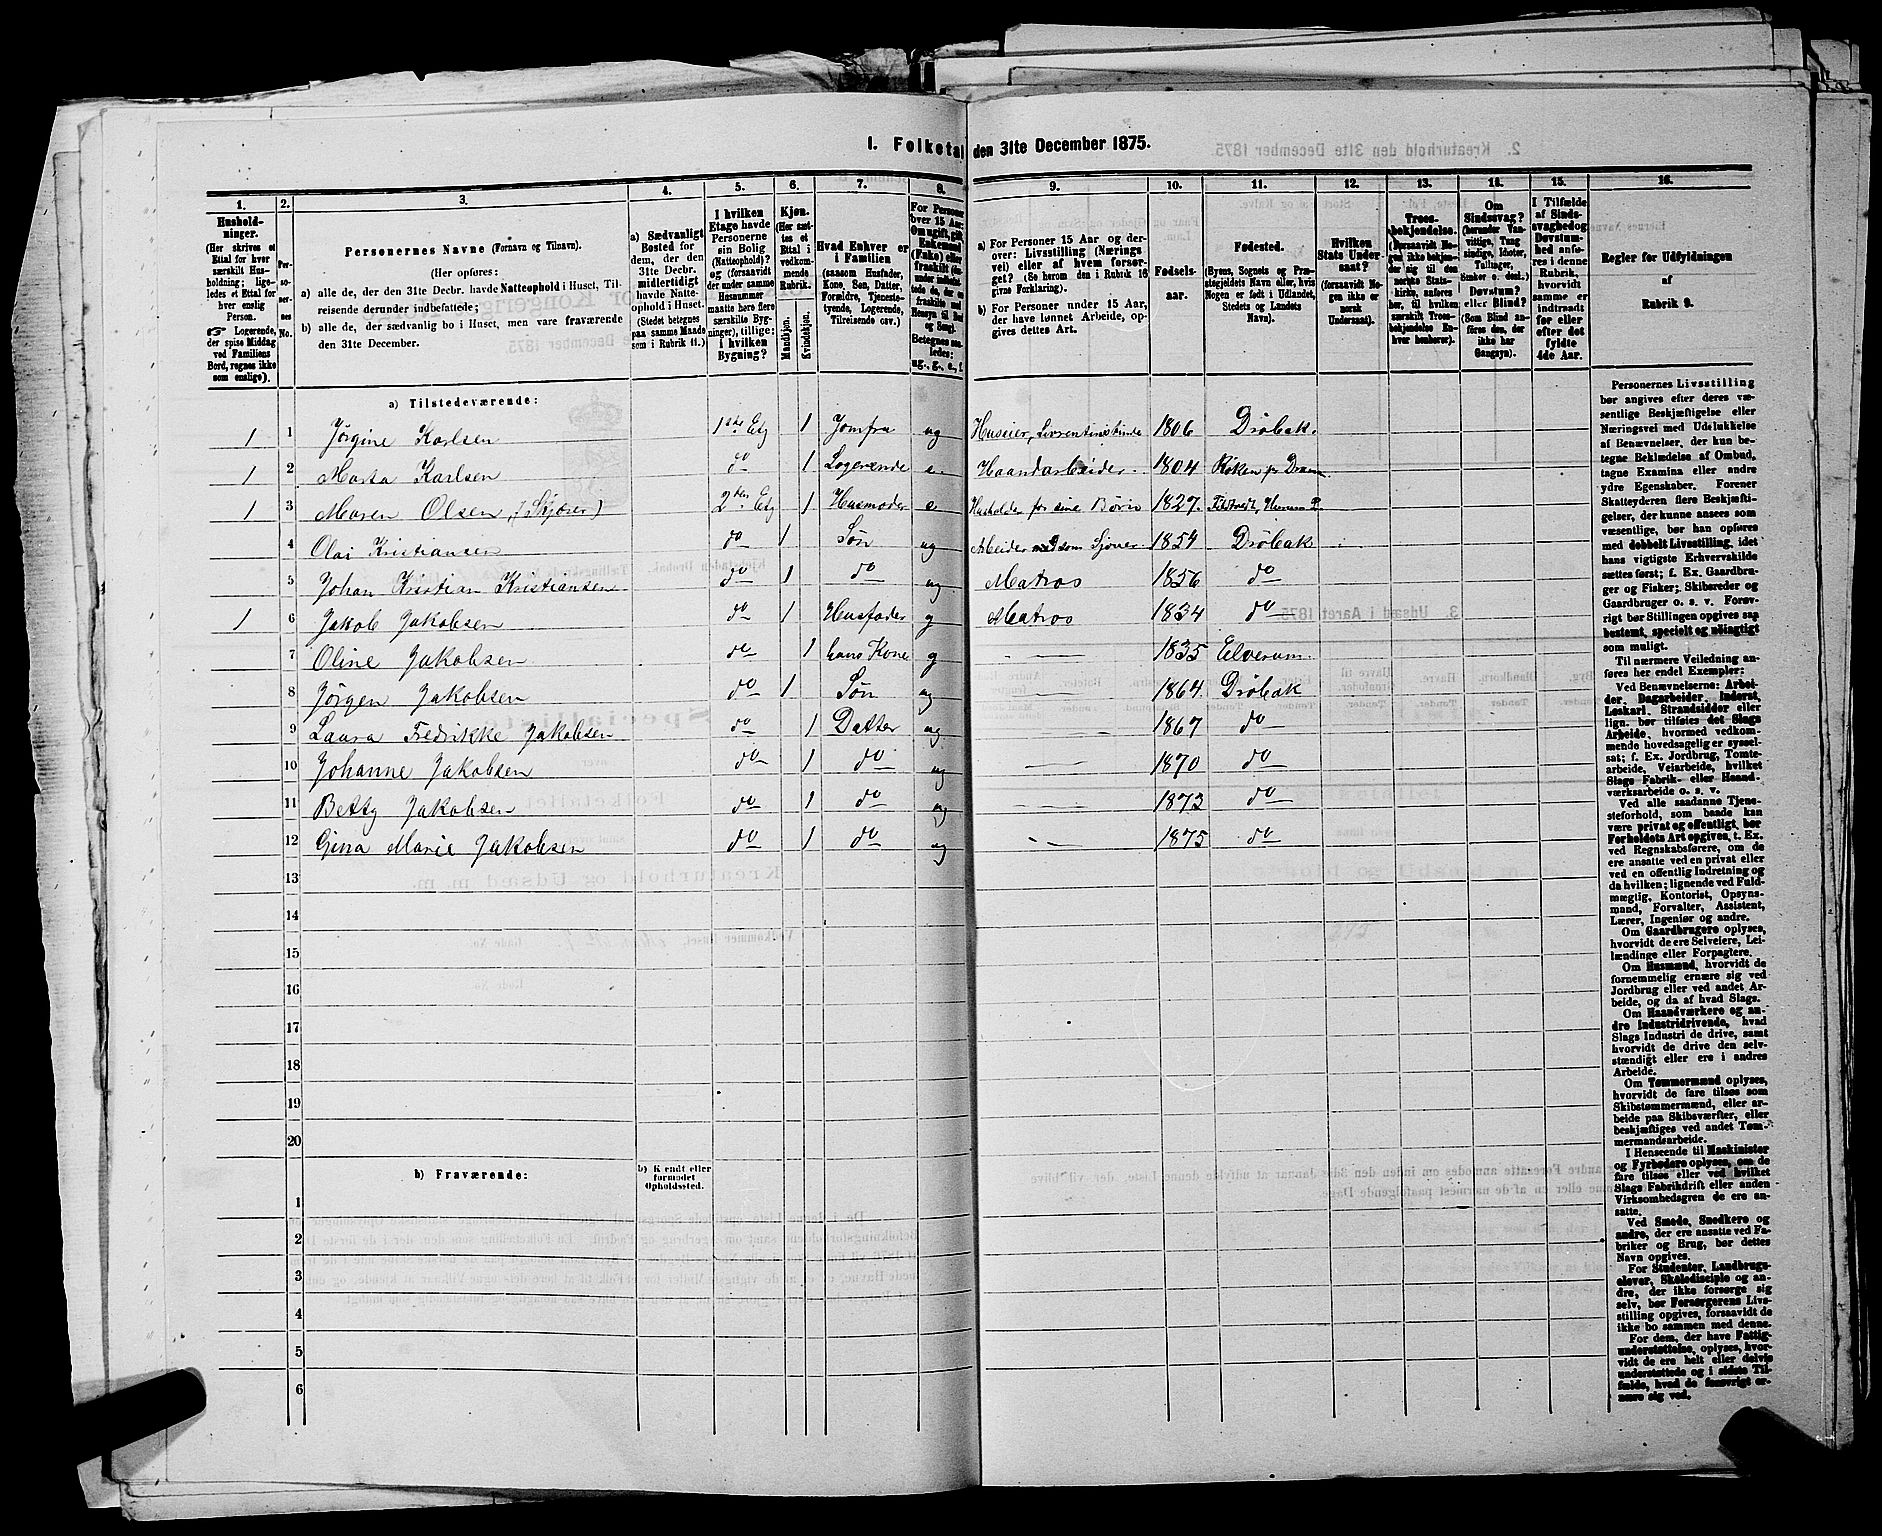 1. Folketal den 31te December 1875.
1. 2. 3. 4. 5. 6. 7. 8. 9. 10. 11. 12. 13. 14. 15. 16.
Hushold-
ninger.
(Her skrives et
Ettal for hver
særskilt Hus-
holdning; lige-
ledes et Ettal for
hver enslig
Person.
☞ Logerende,
der spise Middag
ved Familiens
Bord, regnes ikke
som enslige).
Per-
so-
ner-
nes
No.
Personernes Navne (Fornavn og Tilnavn).
(Her opføres:
a) alle de, der den 31te Decbr. havde Natteophold i Huset, Til-
reisende derunder indbefattede;
b) alle de, der sædvanlig bo i Huset, men vare fraværende
den 31te December.
a) Sædvanligt
Bosted for
dem, der den
31te Decbr.
midlertidigt
havde Natte-
ophold i Huset.
(Stedet betegnes
paa samme Maade
som i Rubrik 11.)
I hvilken
Etage havde
Personerne
sin Bolig
(Natteophold)?
og (forsaavidt
der under samme
Husnummer
maatte høre flere
særskilte Byg-
ninger), tillige:
i hvilken
Bygning?
Kjøn.
(Her sæt-
tes et
Ettal i
vedkom-
mende
Rubrik.
Mandkjøn.
Kvindekjøn.
Hvad Enhver er
i Familien
(saasom Husfader,
Kone, Søn, Datter,
Forældre, Tjeneste-
tyende, Logerende,
Tilreisende osv.)
For Personer
over 15 Aar:
Om ugift, gift,
Enkemand
(Enke) eller
fraskilt
Betegnes saa-
ledes:
ug., g., e., f.
a) For Personer 15 Aar og der-
over: Livsstilling (Nærings-
vei) eller af hvem forsør-
get? (Se herom den i Rubrik 16
givne Forklaring).
b) For Personer under 15 Aar,
der have lønnet Arbeide, op-
gives dettes Art.
Fødsels-
aar.
Fødested.
(Byens, Sognets og Præ-
stegjeldets Navn eller, hvis
Nogen er født i Udlandet,
Stedets og Landets
Navn).
Hvilken
Stats Under-
saat?
(forsaavidt No-
gen ikke er
norsk
Undersaat).
Troes-
bekjendelse.
(Forsaavidt No-
gen ikke bekjen-
der sig til den
norske Stats-
kirke, anføres
her, til hvilken
særskilt Troes-
bekjendelse En-
hver henhører).
Om
Sindssvag?
(herunder Van-
vittige, Tung-
sindige, Idioter,
Tullinger,
Sinker o. desl.)
Døvstum?
eller Blind?
(Som Blind an-
føres den, der
ikke har
Gangsyn).
I Tilfælde
af Sinds-
svaghed og
Døvstum-
hed anfø-
res i denne
Rubrik,
hvorvidt
samme er
indtraadt
før eller
efter det
fyldte
4de Aar.
Regler for Udfyldningen
af
Rubrik 9.
a) Tilstedeværende:
1 1 Jørgine Karlsen 1ste Etg 1 Jomfru ug Huseier, 1806 Drøbak.
1 2 Marta Karlsen do 1 Logerende e. Haandarbeider. 1804 Røken pr Dram
1 3 Maren Olsen, (Skjører) 2den Etg 1 Husmoder e Husholder for sine Børn 1827. Hurum P
4 Olai Kristiansen do 1 Søn ug Arbeider som Sjøver 1854 Drøbak
5 Johan Kristian Kristiansen do 1 do ug Matros 1856 do
1 6 Jakob Jakobsen do 1 Husfader g Matros 1834 do
7 Oline Jakobsen do 1 hans Kone g 1835 Elverum
8 Jørgen Jakobsen do 1 Søn ug 1864. Drøbak
9 Laura Fredrikke Jakobsen do 1 Datter ug 1867 do
10 Johanne Jakobsen do 1 do ug 1870 do
11 Betty Jakobsen do 1 do ug 1873 do
12 Gina Marie Jakobsen do 1 do ug 1875 do
13
14
15
16
17
18
19
20
b) Fraværende:
b) Kjendt eller
formodet
Opholdssted.
1
2
3
4
5
6
Personernes Livsstilling
bør angives efter deres væ-
sentlige Beskjæftigelse eller
Næringsvei med Udelukkelse
af Benævnelser, der kun be-
tegne Beklædelse af Ombud,
tagne Examina eller andre
ydre Egenskaber. Forener
Skatteyderen flere Beskjæfti-
gelser, der kunne ansees som
væsentlige, bør han opføres
med dobbelt Livsstilling, idet
hans vigtigste Erhvervskilde
sættes først; f. Ex. Gaardbru-
ger og Fisker; Skibsreder og
Gaardbruger o. s. v. Forøv-
rigt bør Stillingen opgives saa
bestemt, specielt og nøiagtigt
som muligt.
Til nærmere Veiledning an-
føres her endel Exempler:
Ved Benævnelserne: Arbei-
der, Dagarbeider, Inderst,
Løskarl, Strandsidder eller
lign. bør tilføies det Slags
Arbeide, hvormed vedkom-
mende hovedsagelig er syssel-
sat; f. Ex. Jordbrug, Tomte-
arbeide, Veiarbeide, hvilket
Slags Fabrik- eller Haand-
værksarbeide o. s. v.
Ved alle saadanne Tjene-
steforhold, som baade kan
være privat og offentligt, bør
Forholdets Art opgives, t. Ex.
ved Regnskabsførere, om de
ere ansatte ved en privat eller
ved en offentlig Indretning og
da hvilken; lignende ved Fuld-
mægtig, Kontorist, Opsyns-
mand, Forvalter, Assistent,
Lærer, Ingeniør og andre.
Om Gaardbrugere oplyses,
hvorvidt de ere Selveiere, Lei-
lændinge eller Forpagtere.
Om Husmænd, hvorvidt de
fornemmelig ernære sig ved
Jordbrug eller ved andet Ar-
beide, og da af hvad Slags.
Om Haandværkere og an-
dre Industridrivende, hvad
Slags Industri de drive, samt
hvorvidt de drive den selv-
stændigt eller ere i andres
Arbeide.
Om Tømmermænd oplyses,
hvorvidt de fare tilsøs som
Skibstømmermænd, eller ar-
beide paa Skibsværfter, eller
beskjæftiges ved andet Tøm-
mermandsarbeide.
I Henseende til Maskinister
og Fyrbødere oplyses, om de
fare tilsøs eller ved hvilket
Slags Fabrikdrift eller anden
Virksomhedsgren de ere an-
satte.
Ved Smede, Snedkere og
andre, der ere ansatte ved Fa-
briker og Brug, bør dettes
Navn opgives.
For Studenter, Landbrugs-
elever, Skoledisciple og an-
dre, der ikke forsørge sig
selv, bør Forsørgerens Livs-
stilling opgives, forsaavidt de
ikke bo sammen med denne.
For dem, der have Fattig-
understøttelse, oplyses, hvor-
vidt de ere helt eller delvis
understøttede og i sidste Til-
fælde, hvad de forøvrigt er-
nære sig ved.